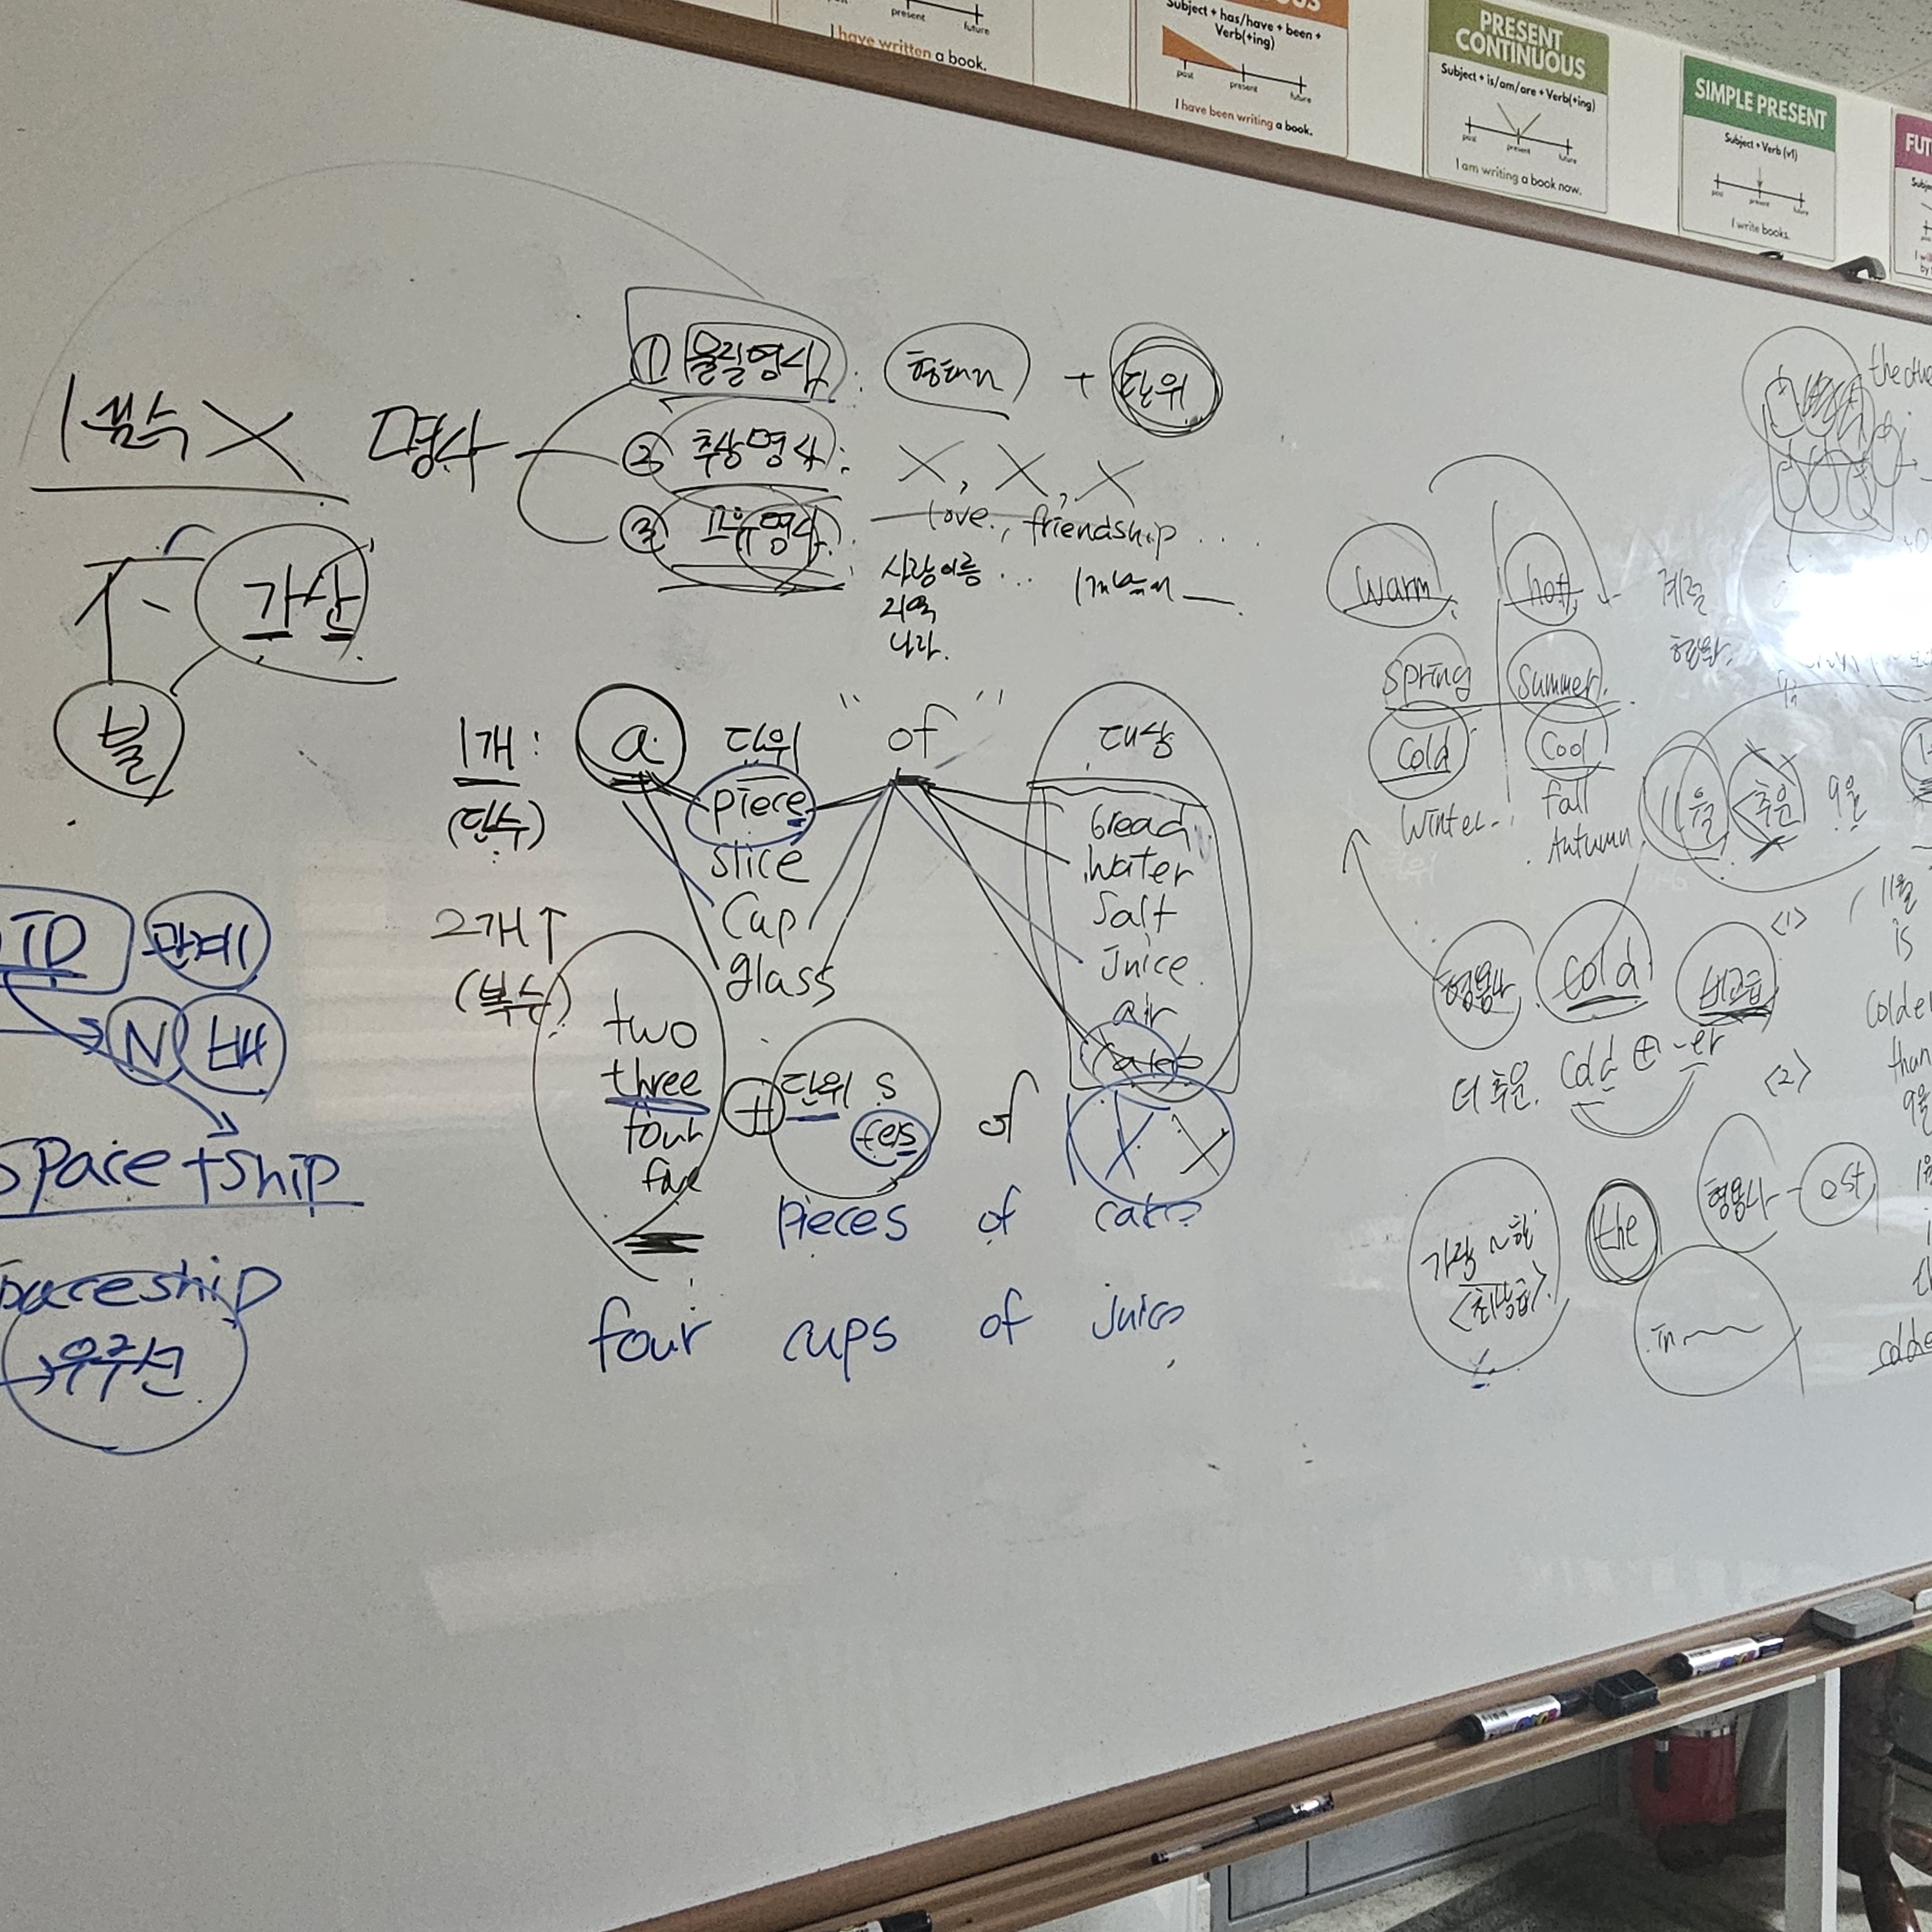 present
future
I have written a book.
Subject + has/have + been +
Verb(+ing)
past
present
future
I have been writing a book.
PRESENT
CONTINUOUS
Subject + is/am/are + Verb(+ing)
past
present
future
I am writing a book now.
SIMPLE PRESENT
Subject + Verb (v1)
past
present
future
I write books.
FUT
X 명사
① 물질명사 : + 단위
② 추상명사 : X, X, X
love, friendship ...
③ 고유명사 :
사람이름 ...
지역
나라.
不 가산
불
1개 : a 단위 "of" 대상
(단수)
piece
slice
cup
glass
bread
water
salt
juice
air
cake
2개↑
(복수)
two
three
four
five
+ 단위 s
es
of X X
pieces of cake
four cups of juice
관계
N 배
Space + ship
paceship
→ 우주선
warm hot
Spring Summer
Cold Cool
Winter fall
Autumn
11월 <추운 9월
형용사 cold 비교급
<1>
11월
is
colde
than
9월
더 추운 Cold ⊕ -er
<2>
가장 ~한
<최상급>
the 형용사 - est
in